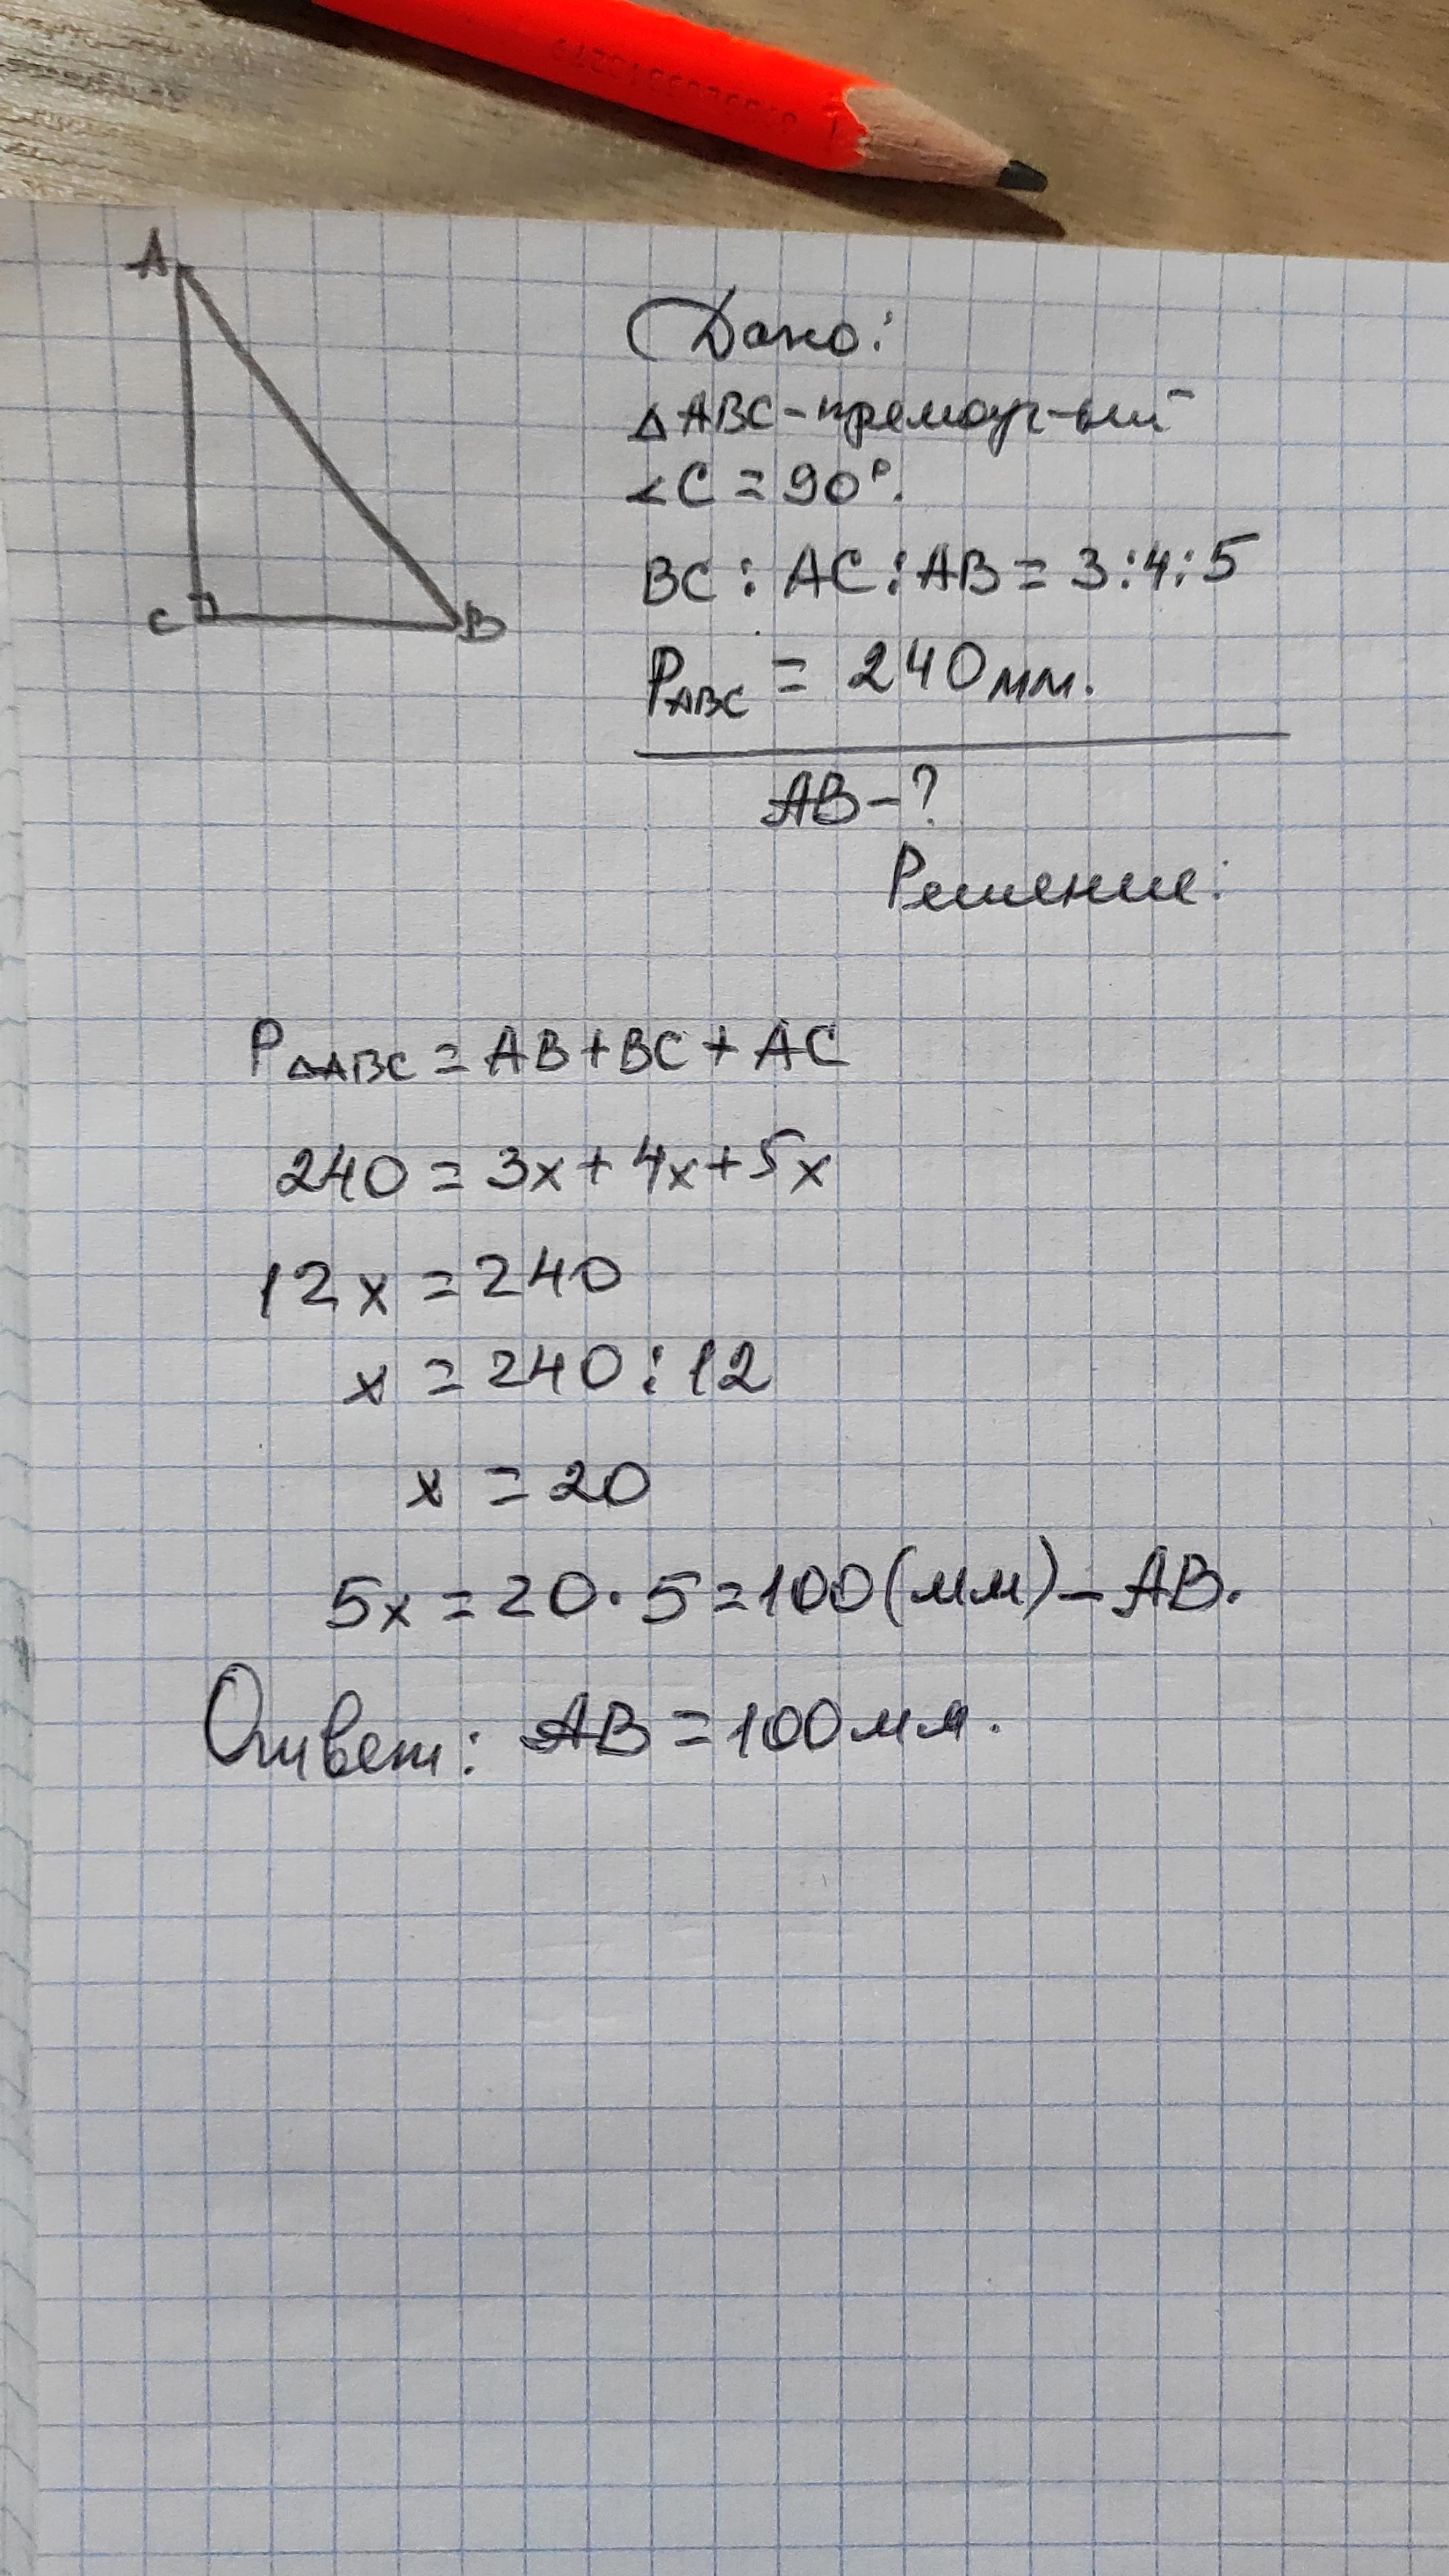 A
C
B
Дано:
△ABC-прямоуг-ый
∠C = 90°.
BC : AC : AB = 3:4:5
P△ABC = 240мм.
AB-?
Решение:
P△ABC = AB+BC+AC
240 = 3x+4x+5x
12x = 240
x = 240:12
x = 20
5x = 20·5=100(мм)-AB.
Ответ: AB = 100мм.